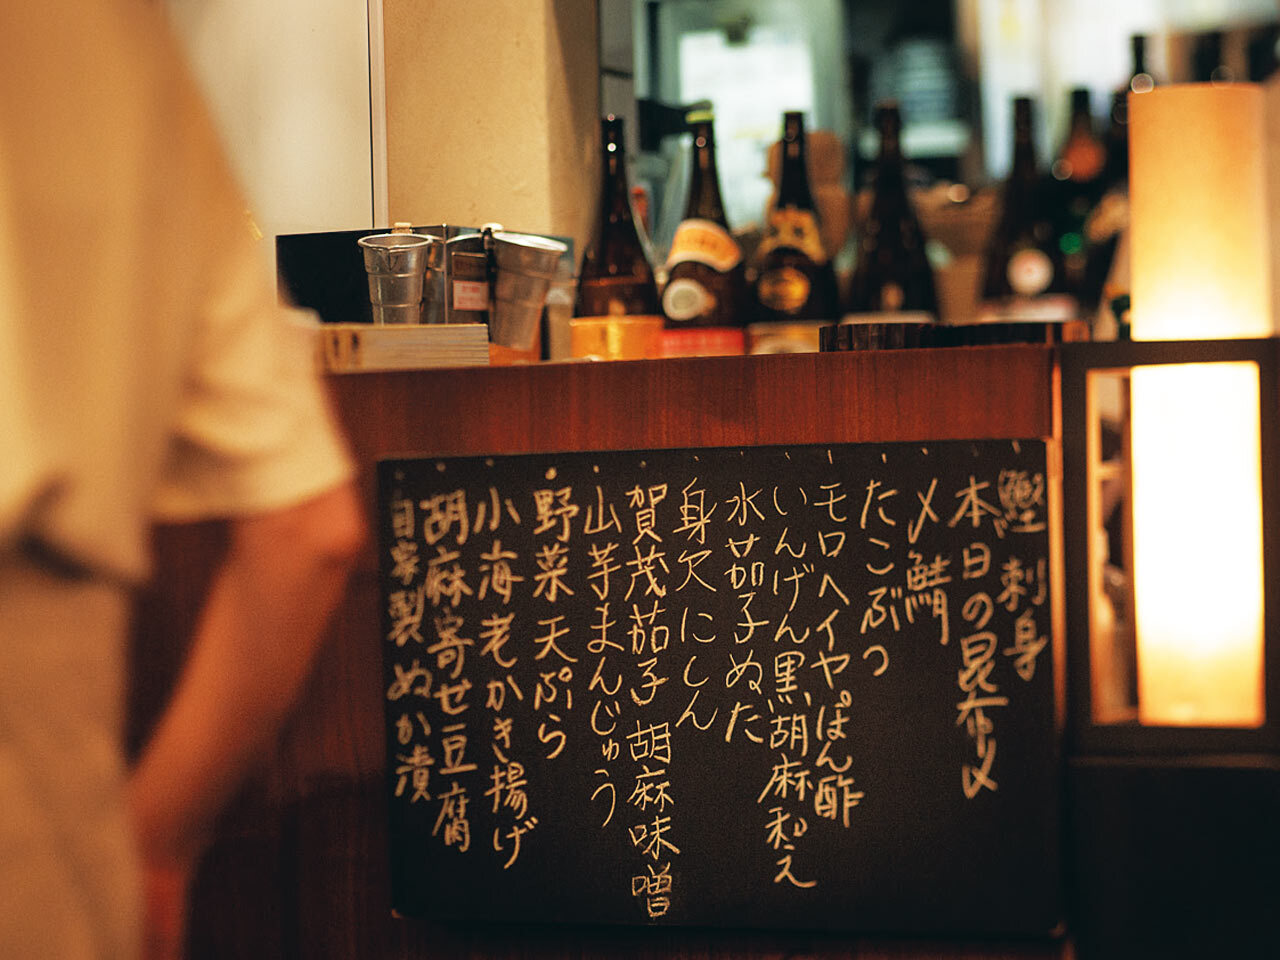 鰹刺身
本日の昆布〆
〆鯖
たこぶつ
モロヘイヤぽん酢
いんげん黒胡麻和え
水茄子ぬた
身欠にしん
賀茂茄子胡麻味噌
山芋まんじゅう
野菜天ぷら
小海老かき揚げ
胡麻寄せ豆腐
自家製ぬか漬